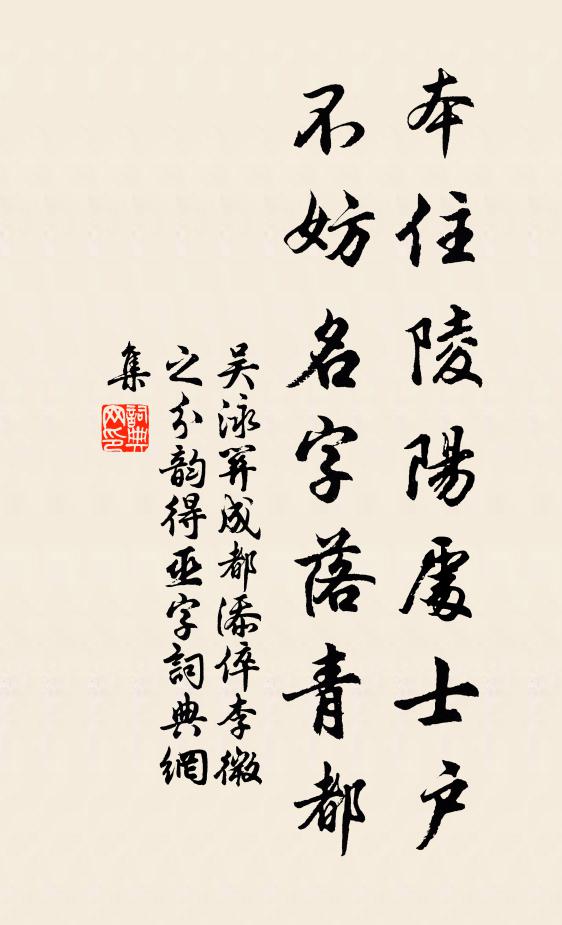 本住陵陽處士戶
不妨名字落青都
吳泳單成都添倅李微
之分韵得亞字詞典網
集
詞典
网印